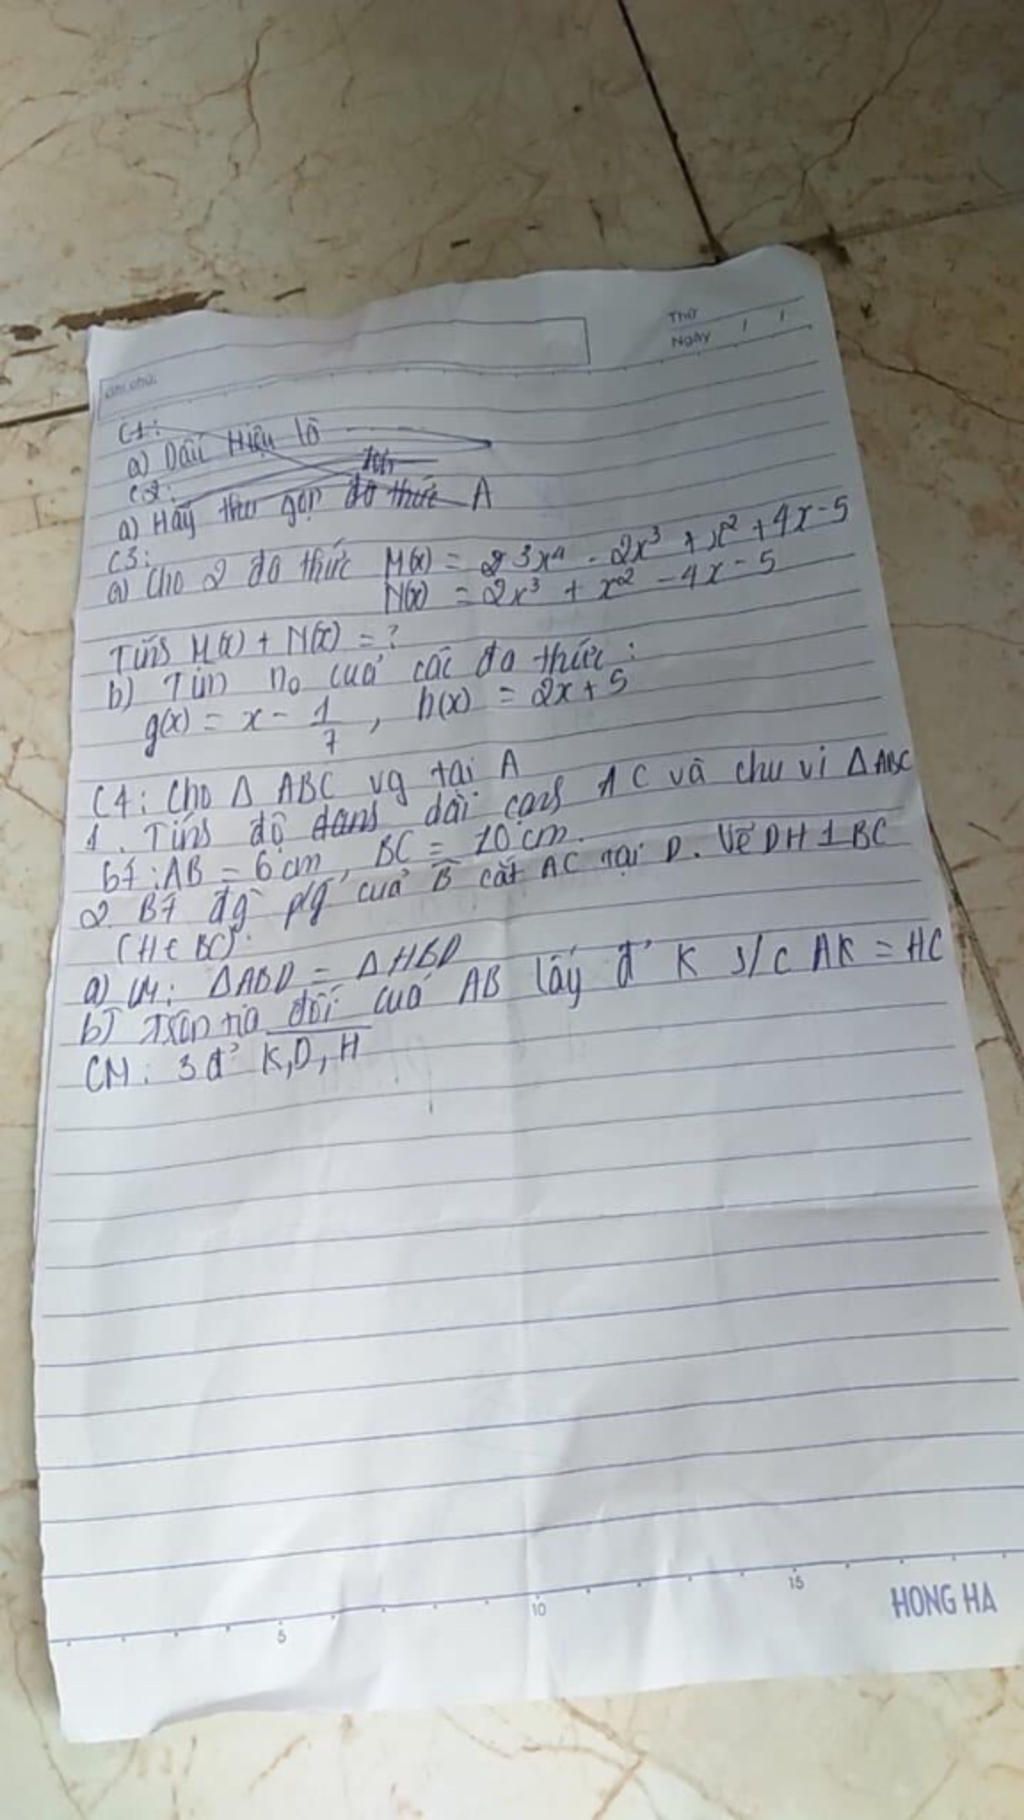 Thứ
Ngày / /
Ghi chú:
C1:
a) Dấu Hiệu là
C2:
a) Hãy thu gọn đa thức A
C3:
a) Cho 2 đa thức M(x) = 3x⁴ - 2x³ + x² + 4x - 5
N(x) = 2x³ + x² - 4x - 5
Tíns M(x) + N(x) = ?
b) Tìm no của các đa thức :
g(x) = x - 1/7 , h(x) = 2x + 5
C4: Cho Δ ABC vg tại A
1. Tíns độ dans dài cạns AC và chu vi Δ ABC
bt : AB = 6 cm, BC = 10 cm.
2 Bt đg p/g của B̂ cắt AC tại D. Vẽ DH ⊥ BC
(H ∈ BC).
a) CM: ΔABD = ΔHBD
b) Trên tia đối của AB lấy đ' K s/c AK = HC
CM: 3 đ' K, D, H
5
10
15
HONG HA